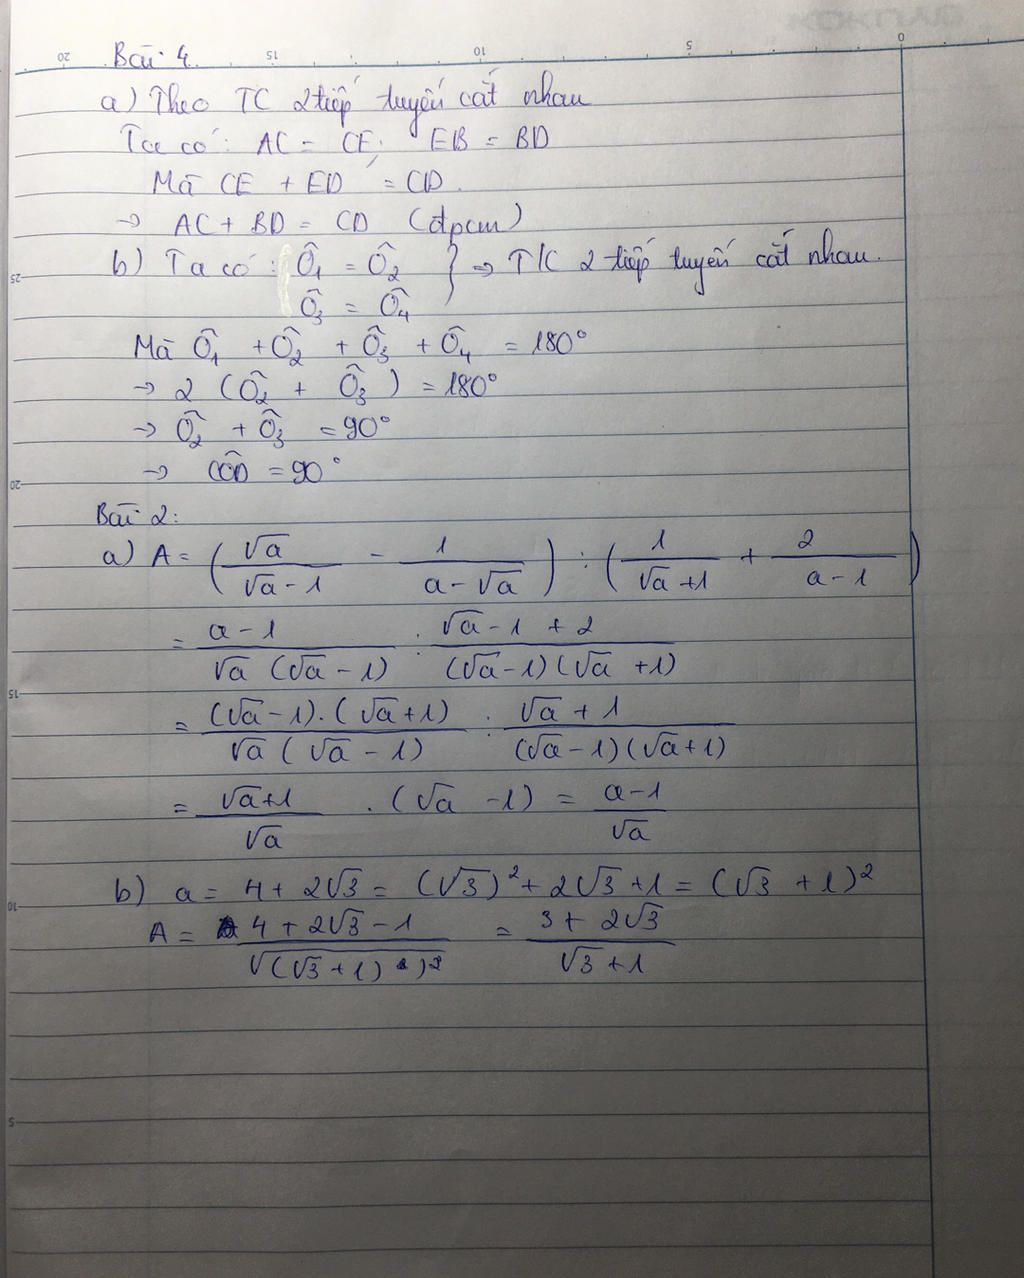 Bài 4.
a) Theo TC 2 tiếp tuyến cắt nhau
Ta có: AC = CE; EB = BD
Mà CE + ED = CD.
→ AC + BD = CD (đpcm)
b) Ta có: Ô1 = Ô2 } → T/C 2 tiếp tuyến cắt nhau.
Ô3 = Ô4
Mà Ô1 + Ô2 + Ô3 + Ô4 = 180°
→ 2 (Ô2 + Ô3) = 180°
→ Ô2 + Ô3 = 90°
→ CÔD = 90°
Bài 2:
a) A = (√a/(√a - 1) - 1/(a - √a)) : (1/(√a + 1) + 2/(a - 1))
= (a - 1)/(√a (√a - 1)) : (√a - 1 + 2)/((√a - 1)(√a + 1))
= ((√a - 1).(√a + 1))/(√a (√a - 1)) : (√a + 1)/((√a - 1)(√a + 1))
= (√a + 1)/√a . (√a - 1) = (a - 1)/√a
b) a = 4 + 2√3 = (√3)² + 2√3 + 1 = (√3 + 1)²
A = (4 + 2√3 - 1)/√((√3 + 1)²) = (3 + 2√3)/(√3 + 1)
20 15 10 5 0
25
20
15
10
5